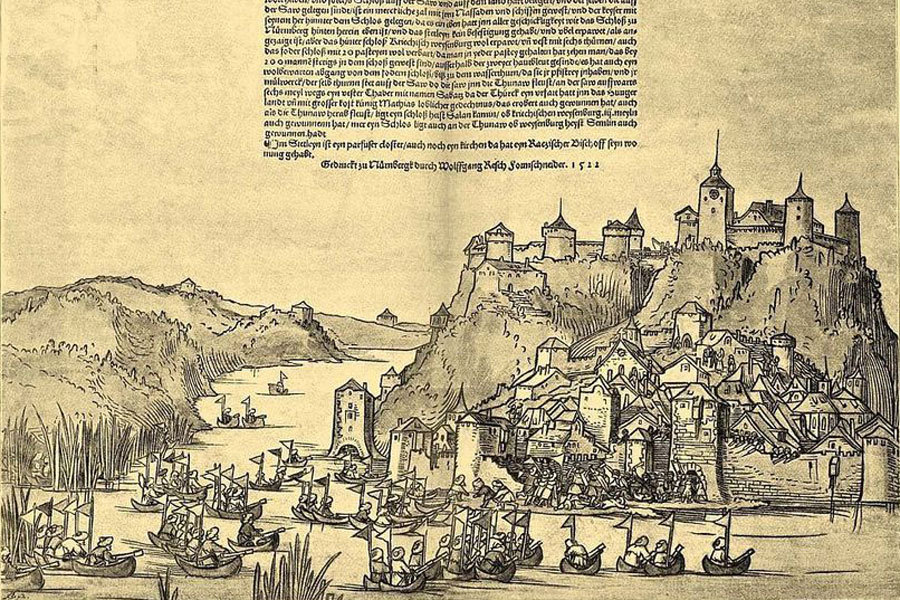 der Saw gelegen sind/ist ein merckliche zal mit jren Nassaden und schiffen gewest/und der keyser mit
seynem her hinnter dem Schlos gelegen/da es ein eben hatt jnn aller geschicklygkeyt wie das Schloß zu
Nürmberg hinten herein eben ist/und das stetleyn keyn befestigung gehabt/und ubel erpawet/als an-
gezaigt ist/aber das hinter schloß Kriechisch weysenburg wol erpawt/uñ vest mit sechs thürnen/auch
das foder schloß mit 20 pasteyen wol verbart/da man jn yeder pastey gehalten hat zehen man/das bey
200 mann stetigs in dem schoß gewest sind/ausserhalb der zweyer haubtleut gesinde/es hat auch eyn
wolverwarten abgang von dem fodern schloß/biß zu dem wasserthurn/da sie jr pfistrey jnhaben/und jr
mülwerck/der selb thurnn stet auff der Saw do die saw jnn die Thunaw fleust/an der saw auffwarts
sechs meyl wegs eyn vester Thader mit namen Sabatz da der Thürck eyn versatt hatt jnn das Hunger
landt uñ mit grosser kost künig Mathias loblicher gedechtnus/das erobert auch gewunnen hat/auch
als die Thunaw herab fleust/ligt eyn schloß heist Salan kamen/ob kriechischen weysenburg.iij.meyln
auch gewunnenn hat/mer eyn Schlos ligt auch an der Thunaw ob weysenburg heyst Semlin auch
gewunnen hadt
Jm Stetleyn ist eyn parfuser closter/auch noch eyn kirchen da hat eyn Raczischer Bischoff seyn wo
nung gehabt.
Gedruckt zu Nürmbergk durch Wolffgang Resch Formschneider. 1522